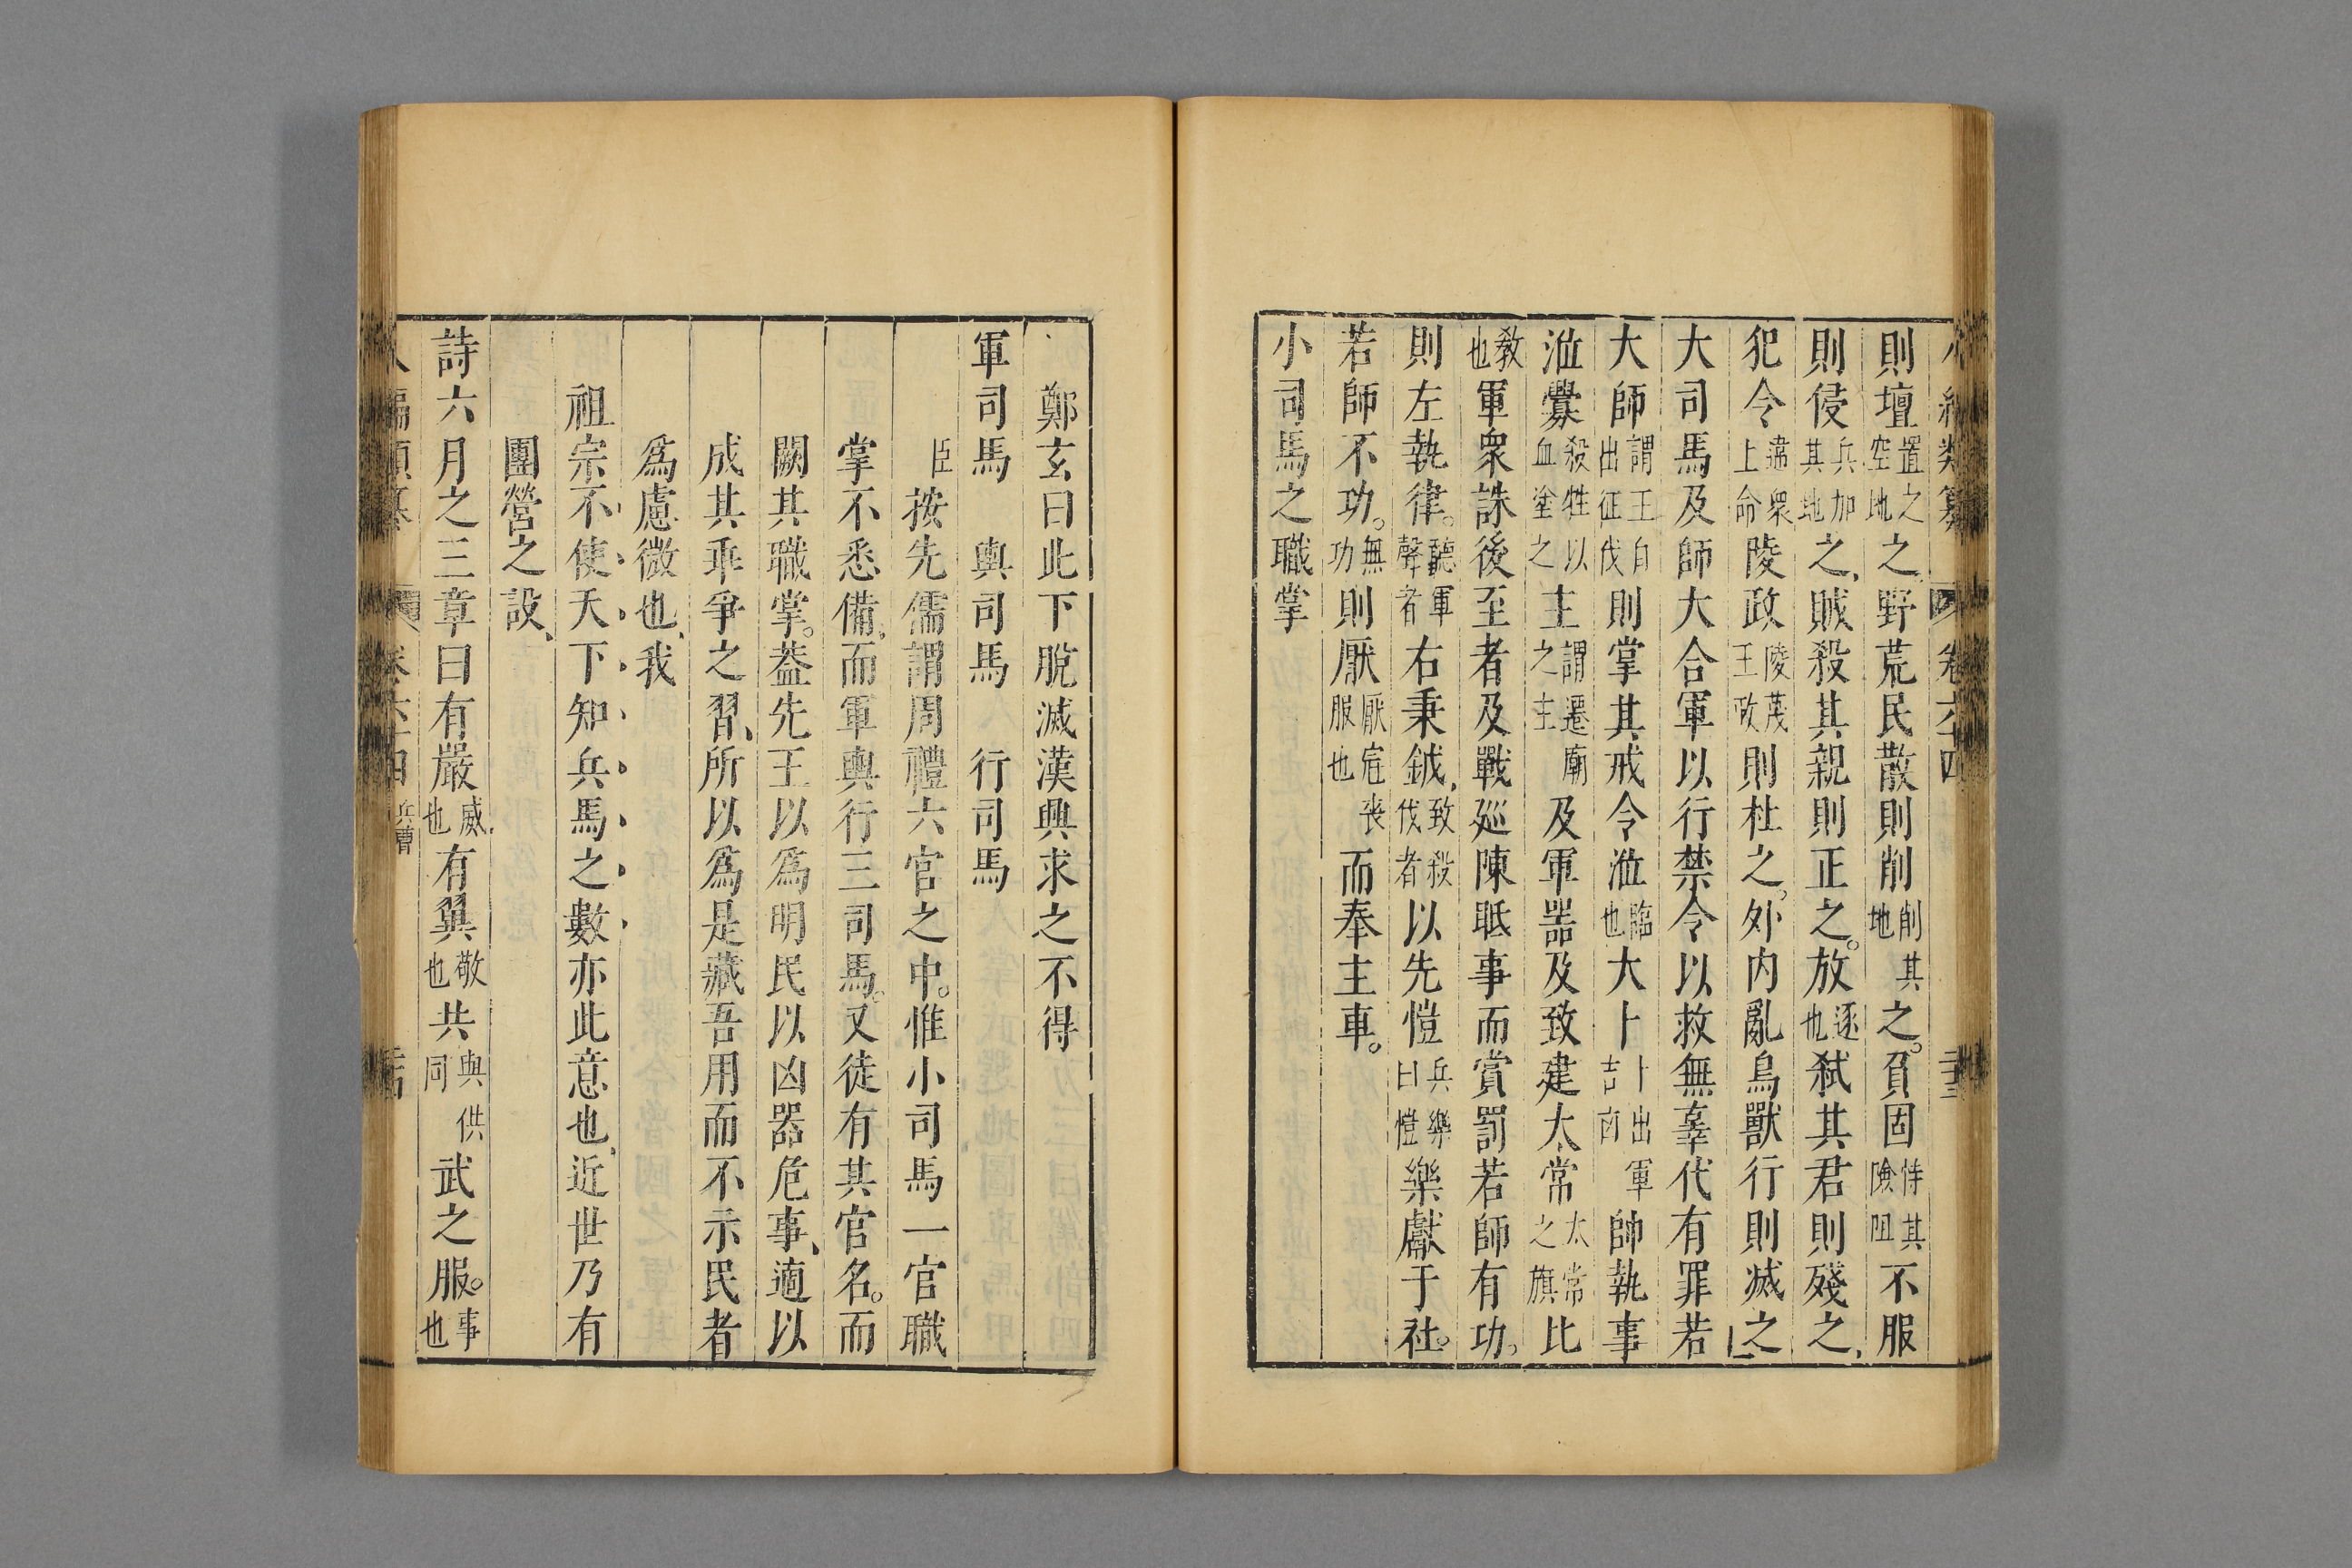 則壇置之空地之野荒民散則削削其地之負固恃其險阻不服
則侵兵加其地之賊殺其親則正之放逐也弑其君則殘之
犯令違衆上命陵政陵蔑王政則杜之外内亂鳥獸行則滅之
大司馬及師大合軍以行禁令以救無辜伐有罪若
大師謂王自出征伐則掌其戒令涖臨也大卜卜出軍吉凶帥執事
涖釁殺牲以血塗之主謂遷廟之主及軍器及致建太常太常之旗比
教也軍衆誅後至者及戰廵陳眡事而賞罰若師有功
則左執律聽軍聲者右秉鉞致殺伐者以先愷兵樂曰愷樂獻于社
若師不功無功則厭厭冠喪服也而奉主車
小司馬之職掌
鄭玄曰此下脫滅漢興求之不得
軍司馬　輿司馬　行司馬
臣按先儒謂周禮六官之中惟小司馬一官職
掌不悉備而軍輿行三司馬又徒有其官名而
闕其職掌葢先王以爲明民以凶器危事適以
成其乖爭之習所以爲是藏吾用而不示民者
爲慮微也我
祖宗不使天下知兵馬之數亦此意也近世乃有
團營之設
詩六月之三章曰有嚴威也有翼敬也共與供同武之服事也